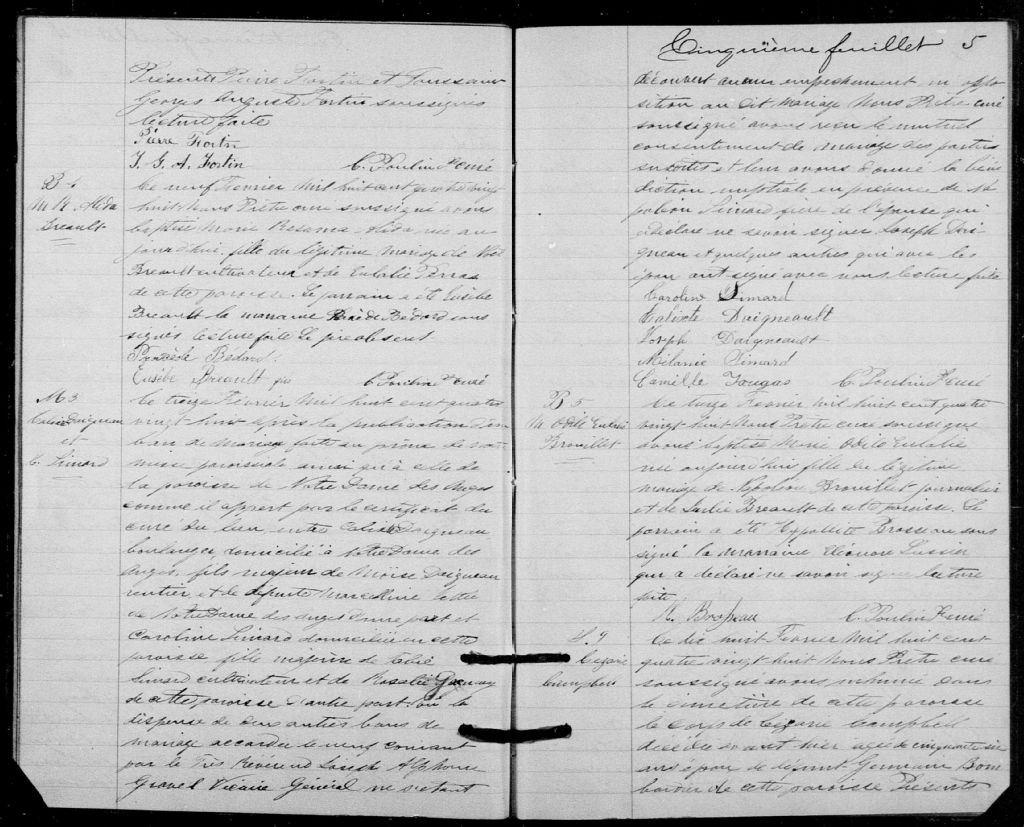 Présents Pierre Fortin et Toussaint
Georges Auguste Fortin soussignés
lecture faite
Pierre Fortin
T. G. A. Fortin C. Poulin Ptre curé
B 4
M R. Alida
Breault
Le neuf Fevrier mil huit cent quatre vingt
huit Nous Prêtre curé soussigné avons
baptisé Marie Rosanna Alida née au
jourd'hui fille du légitime mariage de
Breault cultivateur et de Eulalie
de cette paroisse. Le parrain a été Eusèbe
Breault la marraine Bedard sous
signés lecture faite
Bedard
Eusèbe Breault fils C. Poulin Ptre curé
M 3
Calixte Daigneau
et
C. Simard
Le treize Fevrier mil huit cent quatre
vingt huit après la publication d'un
ban de mariage faite au prône de notre
messe paroissiale ainsi qu'à celle de
la paroisse de Notre Dame des Anges
comme il appert par le certificat du
curé du lieu, entre Calixte Daigneau
boulanger, domicilié à Notre Dame des
Anges, fils majeur de Moïse Daigneau
rentier, et de défunte Marcelline
de Notre Dame des Anges d'une part et
Caroline Simard domiciliée en cette
paroisse fille majeure de
Simard cultivateur et de Rosalie
de cette paroisse d'autre part, vu la
dispense de deux autres bans de
mariage accordée le neuf courant
par le Très Reverend Alphonse
Gravel Vicaire Général ne s'étant
Cinquième feuillet 5
découvert aucun empêchement ni oppo
sition au dit mariage Nous Prêtre curé
soussigné avons reçu le mutuel
consentement de mariage des parties
susdites et leur avons donné la béné
diction nuptiale en présence de Na
poléon Simard frère de l'épouse qui
a déclaré ne savoir signer Joseph Dai
gneau et quelques autres qui avec les
époux ont signé avec nous lecture faite
Caroline Simard
Calixte Daigneault
Joseph Daigneault
Mélanie Simard
Camille Fougas C. Poulin Ptre curé
B 5
M Odile Eulalie
Brouillet
Le treize Fevrier mil huit cent quatre
vingt huit Nous Prêtre curé soussigné
avons baptisé Marie Odile Eulalie
née aujourd'hui fille du légitime
mariage de Napoléon Brouillet journalier
et de Breault de cette paroisse. Le
parrain a été Hyppolite Brosseau sous
signé la marraine Eléonore Lussier
qui a déclaré ne savoir signer lecture
faite
H. Brosseau C. Poulin Ptre curé
S. 9
Cézaire
Campbell
Le dix huit Fevrier mil huit cent
quatre vingt huit Nous Prêtre curé
soussigné avons inhumé dans
le cimetière de cette paroisse
le corps de Campbell
décédée avant hier agée de cinquante six
ans épouse de défunt Germain Bom
bardier de cette paroisse Présents